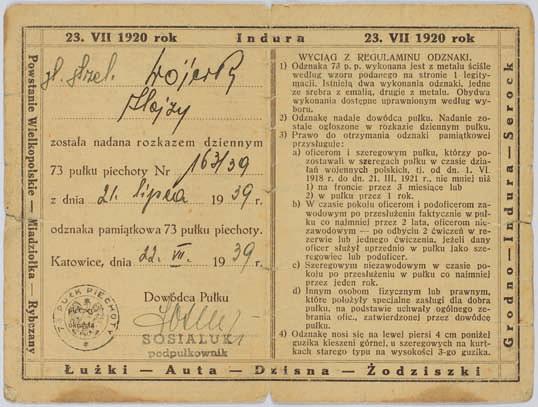 23. VII 1920 rok Indura 23. VII 1920 rok
Powstanie Wielkopolskie — Miadziołka — Rybczany
gł. strzel. Wojerk
Alojzy
została nadana rozkazem dziennym
73 pułku piechoty Nr 163/39
z dnia 21. lipca 1939 r.
odznaka pamiątkowa 73 pułku piechoty.
Katowice, dnia 22. VII. 1939 r.
Dowódca Pułku
SOSIALUK
podpułkownik
PUŁK PIECHOTY
WYCIĄG Z REGULAMINU ODZNAKI.
1) Odznaka 73 p. p. wykonana jest z metalu ściśle
według wzoru podanego na stronie 1 legity-
macji. Istnieją dwa wykonania odznaki, jedne
ze srebra z emalią, drugie z metalu. Obydwa
wykonania dostępne uprawnionym według wy-
boru.
2) Odznakę nadaje dowódca pułku. Nadanie zo-
staje ogłoszone w rozkazie dziennym pułku.
3) Prawo do otrzymania odznaki pamiątkowej
przysługuje:
a) oficerom i szeregowym pułku, którzy po-
zostawali w szeregach pułku w czasie dzia-
łań wojennych polskich, tj. od dn. 1. VI.
1918 r. do dn. 21. III. 1921 r., nie mniej niż
1) na froncie przez 3 miesiące lub
2) w pułku przez 1 rok.
b) W czasie pokoju oficerom i podoficerom za-
wodowym po przesłużeniu faktycznie w puł-
ku co najmniej przez 2 lata, oficerom nie-
zawodowym — po odbyciu 2 ćwiczeń w re-
zerwie lub jednego ćwiczenia, jeżeli dany
oficer służył uprzednio w pułku jako sze-
regowiec lub podoficer.
c) Szeregowym niezawodowym w czasie po-
koju po przesłużeniu w pułku co najmniej
przez jeden rok.
d) Innym osobom fizycznym lub prawnym,
które położyły specjalne zasługi dla dobra
pułku, na podstawie uchwały ogólnego ze-
brania ofic., zatwierdzonej przez dowódcę
pułku.
4) Odznakę nosi się na lewej piersi 4 cm poniżej
guzika kieszeni górnej, u szeregowych na kurt-
kach starego typu na wysokości 3-go guzika.
Grodno — Indura — Serock
Łużki — Auta — Dzisna — Żodziszki